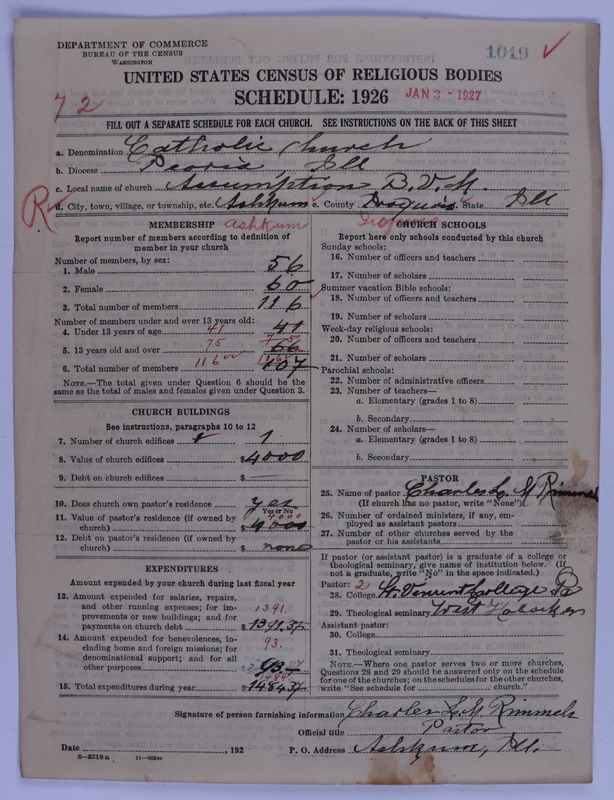 DEPARTMENT OF COMMERCE
BUREAU OF THE CENSUS
WASHINGTON
1019 ✓
UNITED STATES CENSUS OF RELIGIOUS BODIES
72
SCHEDULE: 1926 JAN 3 - 1927
FILL OUT A SEPARATE SCHEDULE FOR EACH CHURCH. SEE INSTRUCTIONS ON THE BACK OF THIS SHEET
a. Denomination Catholic Church
b. Diocese Peoria Ill
c. Local name of church Assumption B.V.M.
R d. City, town, village, or township, etc. Ashkum e. County Iroquois State Ill
MEMBERSHIP Ashkum
Report number of members according to definition of
member in your church
Number of members, by sex:
1. Male 56
2. Female 60
3. Total number of members 116
Number of members under and over 13 years old:
4. Under 13 years of age 41 41
5. 13 years old and over 75 66
6. Total number of members 116 107
NOTE.—The total given under Question 6 should be the
same as the total of males and females given under Question 3.
CHURCH BUILDINGS
See instructions, paragraphs 10 to 12
7. Number of church edifices 1
8. Value of church edifices $4000
9. Debt on church edifices $
10. Does church own pastor's residence yes
Yes or No
11. Value of pastor's residence (if owned by 4000
church) $4000
12. Debt on pastor's residence (if owned by
church) $ none
EXPENDITURES
Amount expended by your church during last fiscal year
13. Amount expended for salaries, repairs,
and other running expenses; for im- 1391.
provements or new buildings; and for
payments on church debt $1391.37
14. Amount expended for benevolences, in- 93.
cluding home and foreign missions; for
denominational support; and for all
other purposes 93
1484
15. Total expenditures during year $1484.37
Iroquois
CHURCH SCHOOLS
Report here only schools conducted by this church
Sunday schools:
16. Number of officers and teachers
17. Number of scholars
Summer vacation Bible schools:
18. Number of officers and teachers
19. Number of scholars
Week-day religious schools:
20. Number of officers and teachers
21. Number of scholars
Parochial schools:
22. Number of administrative officers
23. Number of teachers—
a. Elementary (grades 1 to 8)
b. Secondary
24. Number of scholars—
a. Elementary (grades 1 to 8)
b. Secondary
PASTOR
25. Name of pastor Charles L. M. Rimmels
(If church has no pastor, write "None")
26. Number of ordained ministers, if any, em-
ployed as assistant pastors
27. Number of other churches served by the
pastor or his assistants
If pastor (or assistant pastor) is a graduate of a college or
theological seminary, give name of institution below. (If
not a graduate, write "No" in the space indicated.)
Pastor: 2
28. College St. Vincent College Pa
29. Theological seminary West Hoboken
Assistant pastor:
30. College
31. Theological seminary
NOTE.—Where one pastor serves two or more churches,
Questions 28 and 29 should be answered only on the schedule
for one of the churches; on the schedules for the other churches,
write "See schedule for church."
Signature of person furnishing information Charles L. M. Rimmels
Official title Pastor
Date , 192 P. O. Address Ashkum, Ill.
8—5518a